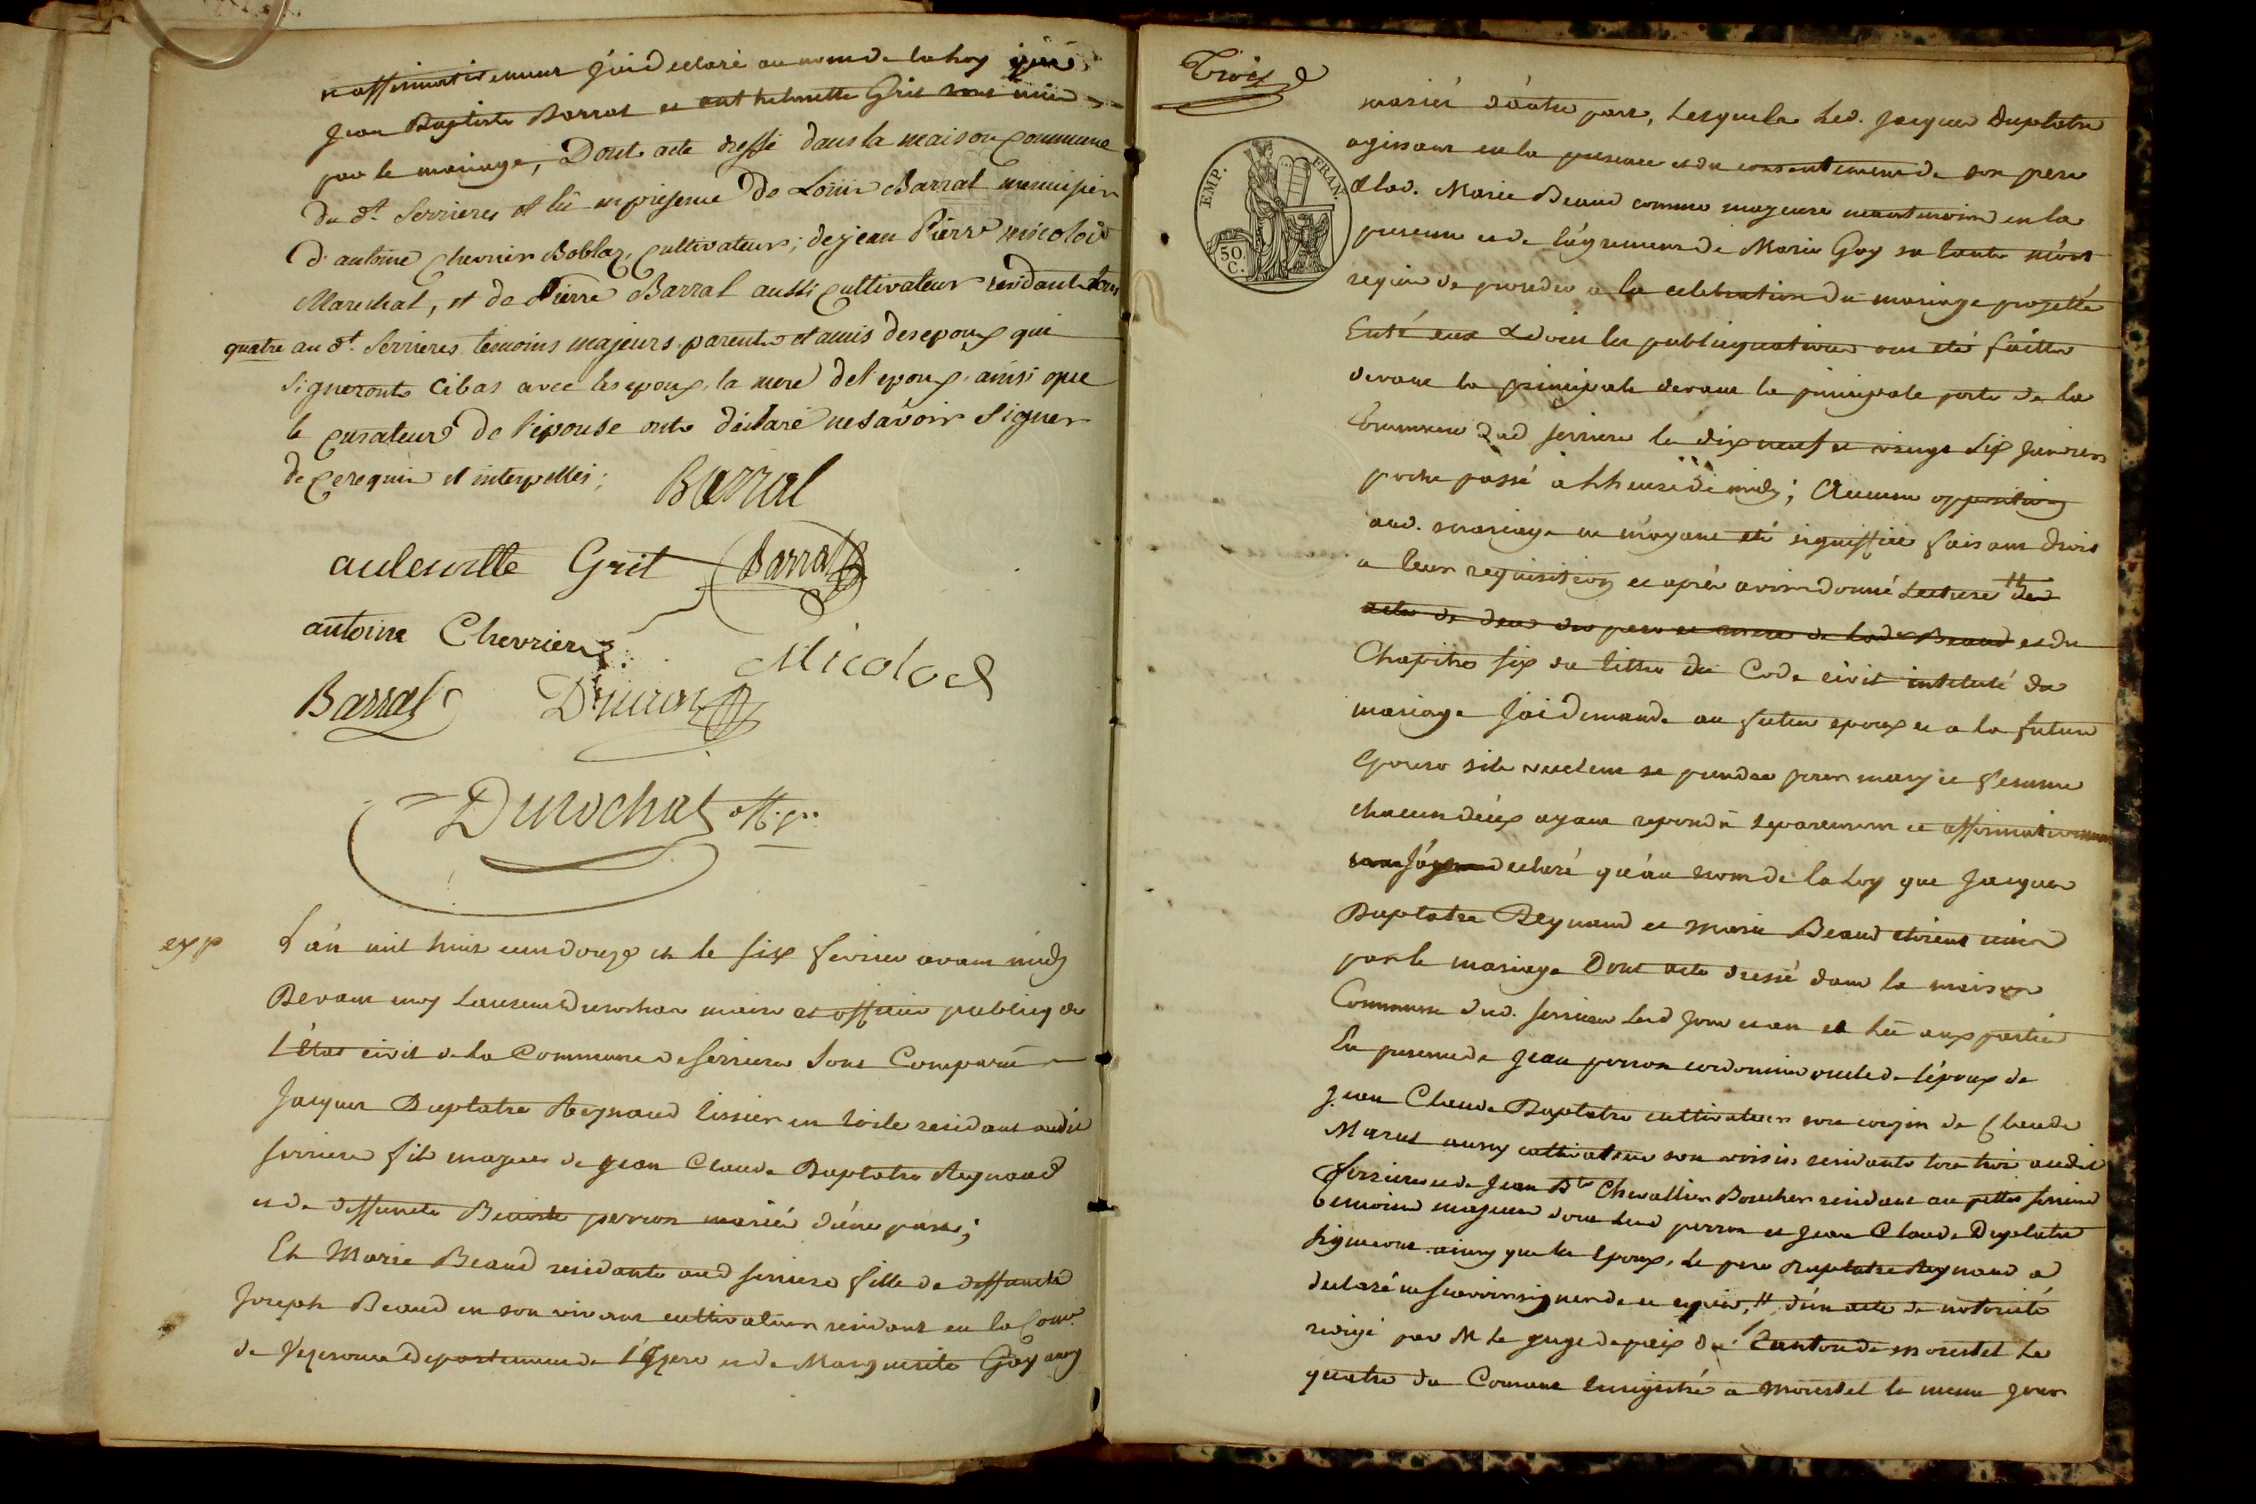 et affirmativement j'ai declaré au nom de la loy que
Jean Baptiste Barral et anthelmette Gril sont unis
par le mariage, Dont acte dressé dans la maison commune
du dt. Serrieres et lû en presence de Loüis Barral menuisier
d'antoine Chevrier Boblaz, Cultivateurs; de jean Pierre micolod
Marechal, et de Pierre Barral aussi Cultivateur residants tous
quatre au dt. Serrieres temoins majeurs parents et amis des epoux qui
signeronts cibas avec les epoux, la mere de l'epoux, ainsi que
le curateur de l'épouse onts déclaré ne savoir signer
de ce requis et interpellés;
Barral
antelmette Gril Barral
antoine Chevrier
Micolod
Barral
Durochat
exp
L'an mil huit cent douze et le six fevrier avant midy
Devant moy Laurent Durochat maire et officier publicq de
l'Etat civil de la Commune de Serrieres Sont Comparu
Jacques Duplatre Reynaud tissier en toile residant audit
serriere fils majeur de Jean Claude Duplatre Reynaud
et de deffuncte Benoite perron mariés d'une part;
Et Marie Beaud residante aud serriere fille de deffunct
Joseph Beaud en son vivant cultivateur residant en la Com.
de Vezeronce departement de l'Izere et de Marguerite Goy
Trois
EMP. FRAN.
50 C.
mariés d'autre part, Lesquels Led. Jacques Duplatre
agissant en la presence et du consentement de son pere
et lad. Marie Beaud comme majeure neantmoins en la
presence et de l'agrement de Marie Goy sa tante m'ont
requis de proceder a la celebration du mariage projetté
Entré eux dont les publicquations ont eté faittes
devant la principale devant la principale porte de la
Commune dud serriere les dix neuf et vingt six janvier
proche passé a l'heure de midy; Aucune opposition
aud. mariage ne m'ayant eté signiffiée faisant droit
a leur requisition et aprés avoir donné Lecture # des
actes de deces des pere et mere de lad. Beaud et du
Chapitre six du tittre du Code civil intitulé du
mariage J'ai demandé au futur epoux et a la future
Epouse s'ils veulent se prendre pour mary et femme
chacun d'eux ayant repondu separement et affirmativement
declaré qu'au nom de la Loy que Jacques
Duplatre Reynaud et Marie Beaud etoient unis
par le mariage Dont acte dressé dans la maison
Commune dud. serriere Led jour et an et Lu aux parties
En presence de Jean perron cordonnier oncle de l'époux de
Jean Claude Duplatre cultivateur son cousin de Claude
Maret aussy cultivateur son voisin residants tous trois audit
Serrieres et de Jean Bte Chevallier Boucher residant au petit serriere
temoins majeurs dont Led perron et Jean Claude Duplatre
signeront ainsy que les Epoux, le pere Duplatre Reynaud a
declaré ne scavoir signer de ce requis, # d'un acte de notorieté
redigé par M le juge de paix du Canton de morestel le
quatre du Courant Enregistré a morestel le meme jour